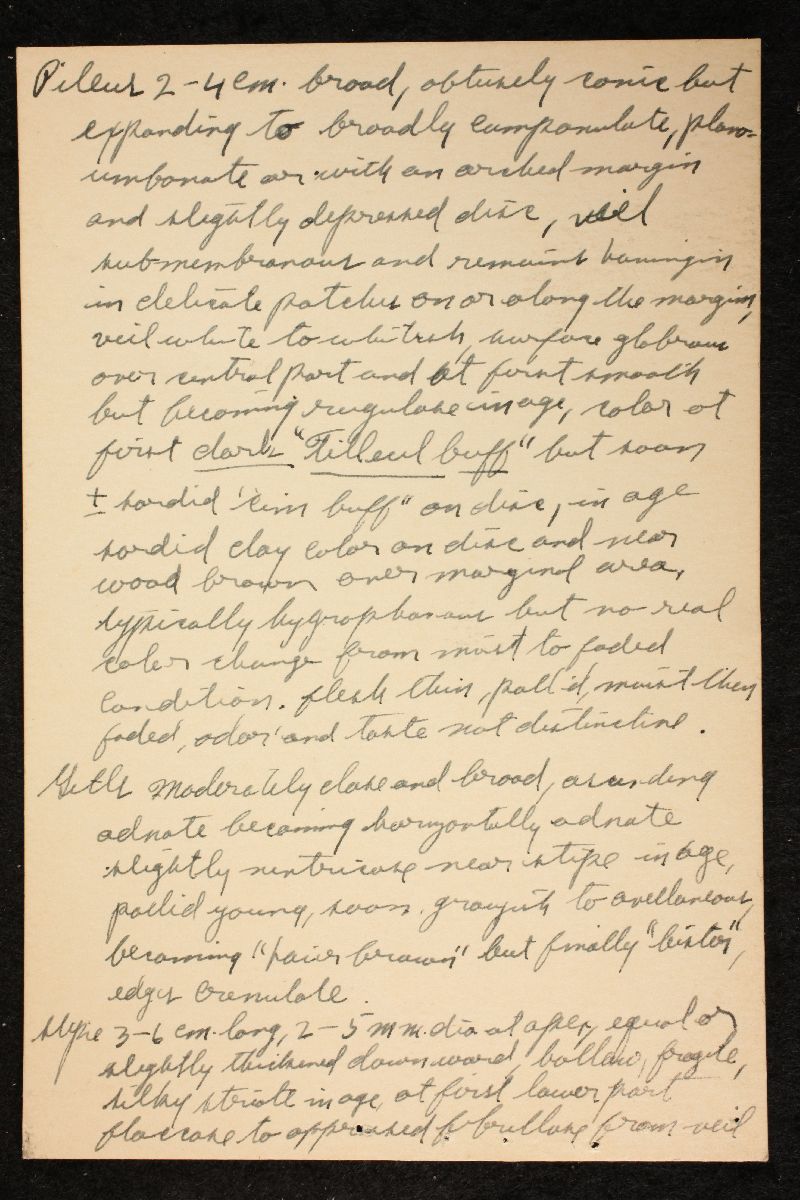 Pileus 2-4 cm. broad, obtusely conic but
expanding to broadly campanulate, plano-
umbonate or with an arched margin
and slightly depressed disc, veil
submembranous and remains hanging in
in delicate patches on or along the margin,
veil white to whitish, surface glabrous
over central part and at first smooth
but becoming rugulose in age, color at
first dark "Tilleul buff" but soon
± sordid "cin buff" on disc, in age
sordid clay color on disc and near
wood brown over marginal area,
typically hygrophanous but no real
color change from moist to faded
condition. flesh thin, pallid, moist then
faded, odor and taste not distinctive.
Gills moderately close and broad, ascending
adnate becoming horizontally adnate
slightly ventricose near stipe in age,
pallid young, soon grayish to avellaneous,
becoming "hair brown" but finally "bister",
edges crenulate.
stipe 3-6 cm. long, 2-5 mm. dia at apex, equal or
slightly thickened downward, hollow, fragile,
silky striate in age, at first lower part
floccose to appressed fibrillose from veil